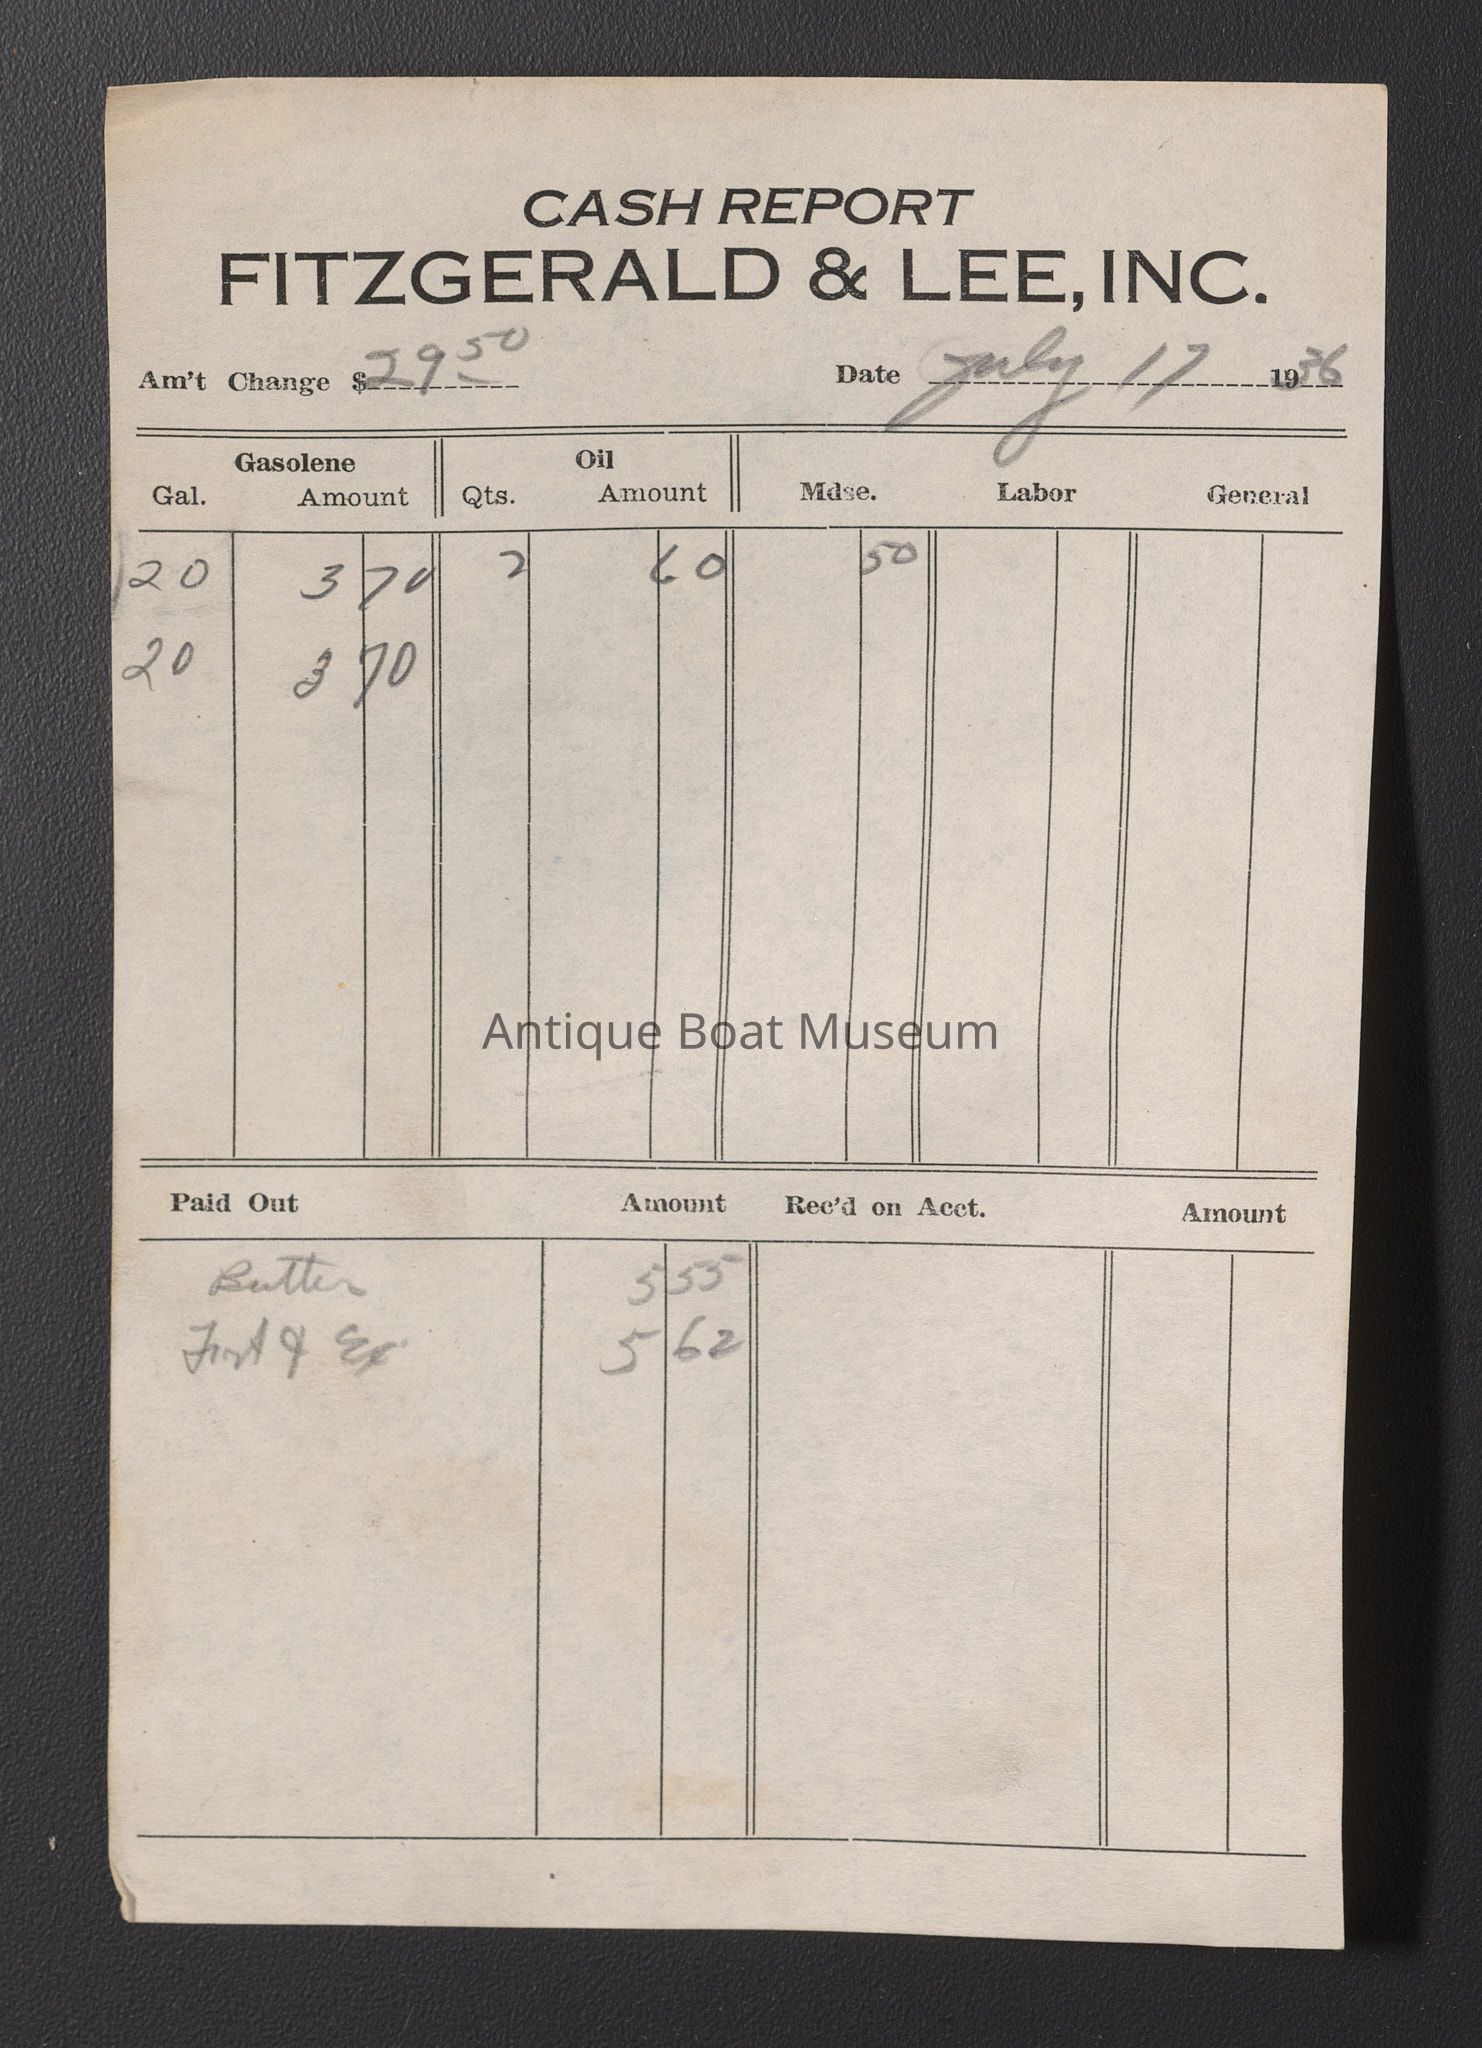 CASH REPORT
FITZGERALD & LEE, INC.
Am't Change $ 29 50 Date July 17 1936
Gasolene Oil
Gal. Amount Qts. Amount Mdse. Labor General
20 3 70 2 60 50
20 3 70
Antique Boat Museum
Paid Out Amount Rec'd on Acct. Amount
Butter 5 55
Frt & Ex 5 62